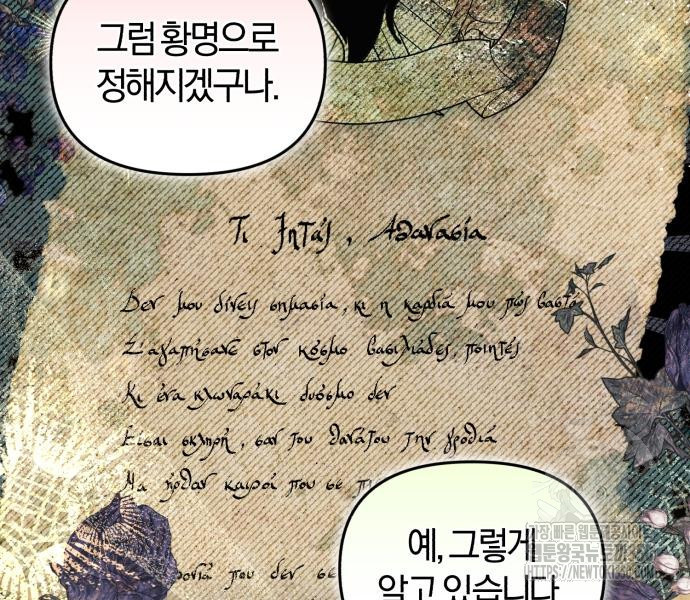 그럼 황명으로
정해지겠구나.
Τι ζητάς, Αθανασία
Δεν μου δίνεις σημασία, κι η καρδιά μου πώς βαστά
Σ'αγαπήσανε στον κόσμο βασιλιάδες, ποιητές
Κι ένα κλωναράκι δυόσμο δεν
Είσαι σκληρή, σαν του θανάτου την γροθιά
Μα ήρθαν καιροί που σε π
που δεν σε
예, 그렇게
알고 있습니다
가장 빠른 웹툰제공사이트
웹툰왕국뉴토끼
HTTPS://NEWTOKI